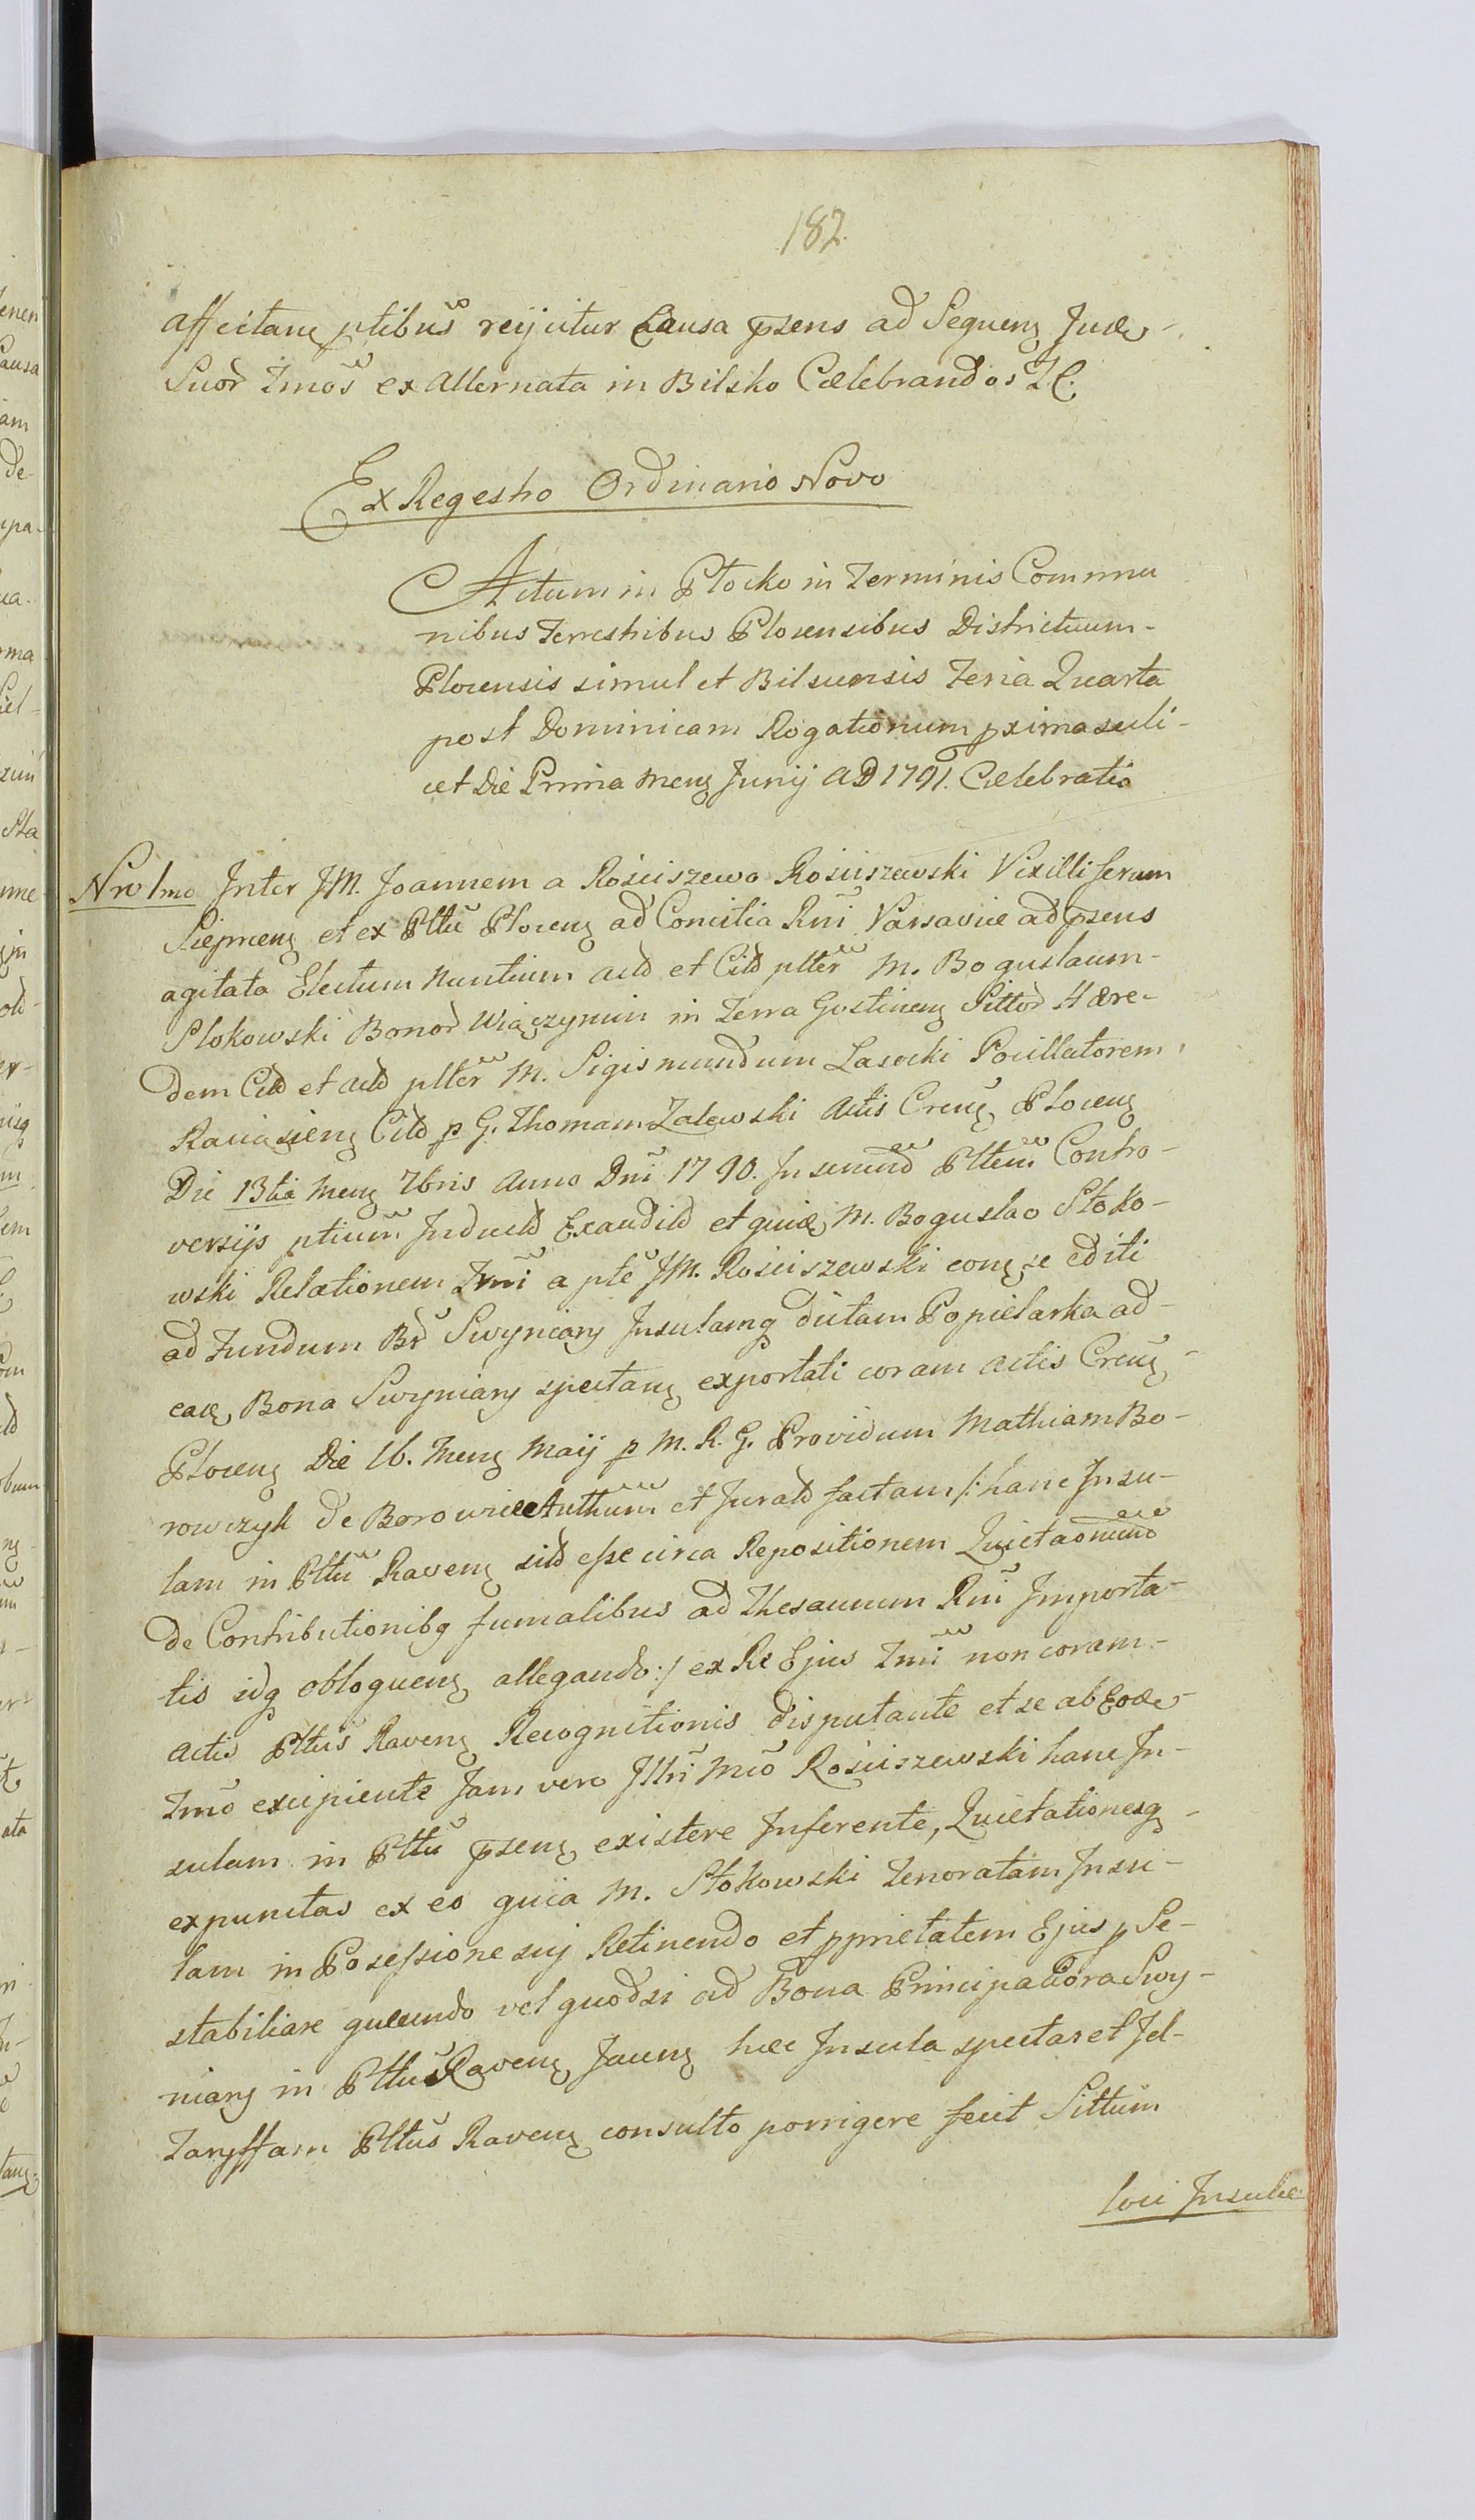 182.
affectanę ptibus reijcitur Causa p̄sens ad Sequenę Jud͠
Suor Tmos ex Alternata in Bilsko Cælebrandos J.C.
Ex Regestro Ordinario Novo
Actum in Płocko in Terminis Commu
nibus Terrestribus Plocensibus Districtuum-
Plocensis simul et Bilscensis Feria Quarta
post Dominicam Rogationum pxima scili-
cet Die Prima Menę Junij AD 1791. Cælebratis
Nro 1mo Inter JM. Joannem a Rościszewo Rościszewski Vixilliferum
Siepmenę et ex Pttu Plocenę ad Comitia Rni Varsaviæ ad p̄sens
agitata Electum Nuntium actd et Citd plter M. Boguslaum-
Slokowski Bonor Wiączymin in Terra Gostinenę Sittor Hære-
dem Citd et actd plter M. Sigismundum Lasocki Pocillatorem
Raciązienę Citd p G. Thomam Zalewski Actis Crenę Plocenę
Die 13tia Menę 7bris Anno Dni 1790. In senund Pltem Contro-
versijs ptium Inductd Exauditd et quia M. Boguslao Stoko-
wski Relationem Tmi a pte JM. Rościszewski conę se editi
ad Fundum Br Swyniary Insulamq dictam Popielarka ad-
eaę Bona Swyniary spectanę exportati coram actis Crenę-
Plocenę Die 16. Menę Maij p M. R. G. Providum Mathiam Bo-
rowczyk de Borowice Authum et Juratd factam /: hanc Insu-
lam in Pttu Ravenę sitd esse circa Repositionem Quietaõnum
de Contributionibq fumalibus ad Thesaurum Rni Importa-
tis idq obloquenę allegando :/ ex Re Ejus Tmi non coram-
Actis Pttus Ravenę Recognitionis disputante et se ab Eod͠-
Tmo excipiente Jam vero Jllri Mco Rościszewski hanc In-
sulam in Pttu p̄senę existere Inferente, Quietationesq-
expunctas ex eo quia M. Stokowski Tenoratam Insu-
lam in Posessione suj Retinendo et pprietatem Ejus p Se-
stabiliare quærendo vel quodsi ad Bona Principaliora Swy-
niary in Pttu Ravenę Jacenę hæc Insula spectaret Jd-
Taryffam Pttus Ravenę consulto porrigere fecit Sittum
loci Insulæ